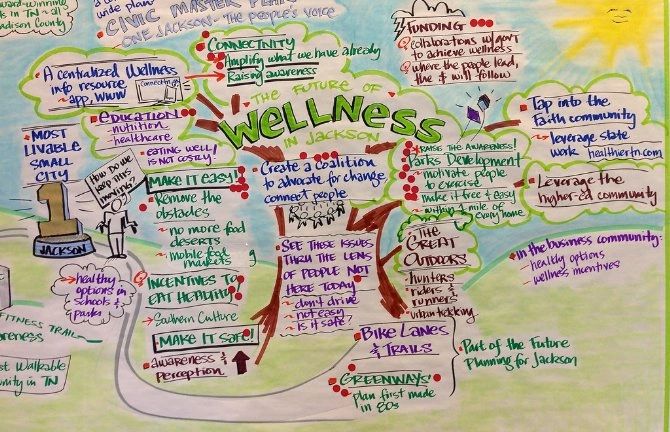 wide plan
CIVIC MASTER PLAN
ONE JACKSON~THE PEOPLE'S VOICE
award-winning
in TN ~ all
Madison County
CONNECTIVITY
Amplify what we have already
Raising awareness
FUNDING
collaborations w/govt
to achieve wellness
where the people lead,
the $ will follow
A centralized Wellness
info resource
~ app, www
THE FUTURE OF
WELLNESS
IN JACKSON
EDUCATION
~ nutrition
~ healthcare
~ EATING WELL
IS NOT COSTLY
MOST
LIVABLE
SMALL
CITY
1
JACKSON
How do we
keep this
moving?
MAKE IT EASY!
Remove the
obstacles
~ no more food
deserts
~ mobile food
markets
INCENTIVES TO
EAT HEALTHY
→ Southern Culture
MAKE IT SAFE!
→ Awareness &
Perception
→ healthy
options in
schools &
parks
FITNESS TRAIL
awareness
st Walkable
unity in TN
Create a coalition
to advocate for change
connect people
SEE THESE ISSUES
THRU THE LENS
OF PEOPLE NOT
HERE TODAY
~ don't drive
~ not easy
~ is it safe?
RAISE THE AWARENESS!
Parks Development
~ motivate people
to exercise
~ make it free & easy
~ within 1 mile of
every home
THE
GREAT
OUTDOORS
hunters
riders &
runners
urban trekking
BIKE LANES
& TRAILS
GREENWAYS
plan first made
in 80s
Part of the Future
Planning for Jackson
Tap into the
Faith community
~ leverage state
work healthiertn.com
Leverage the
higher-ed community
In the business community:
~ healthy options
~ wellness incentives